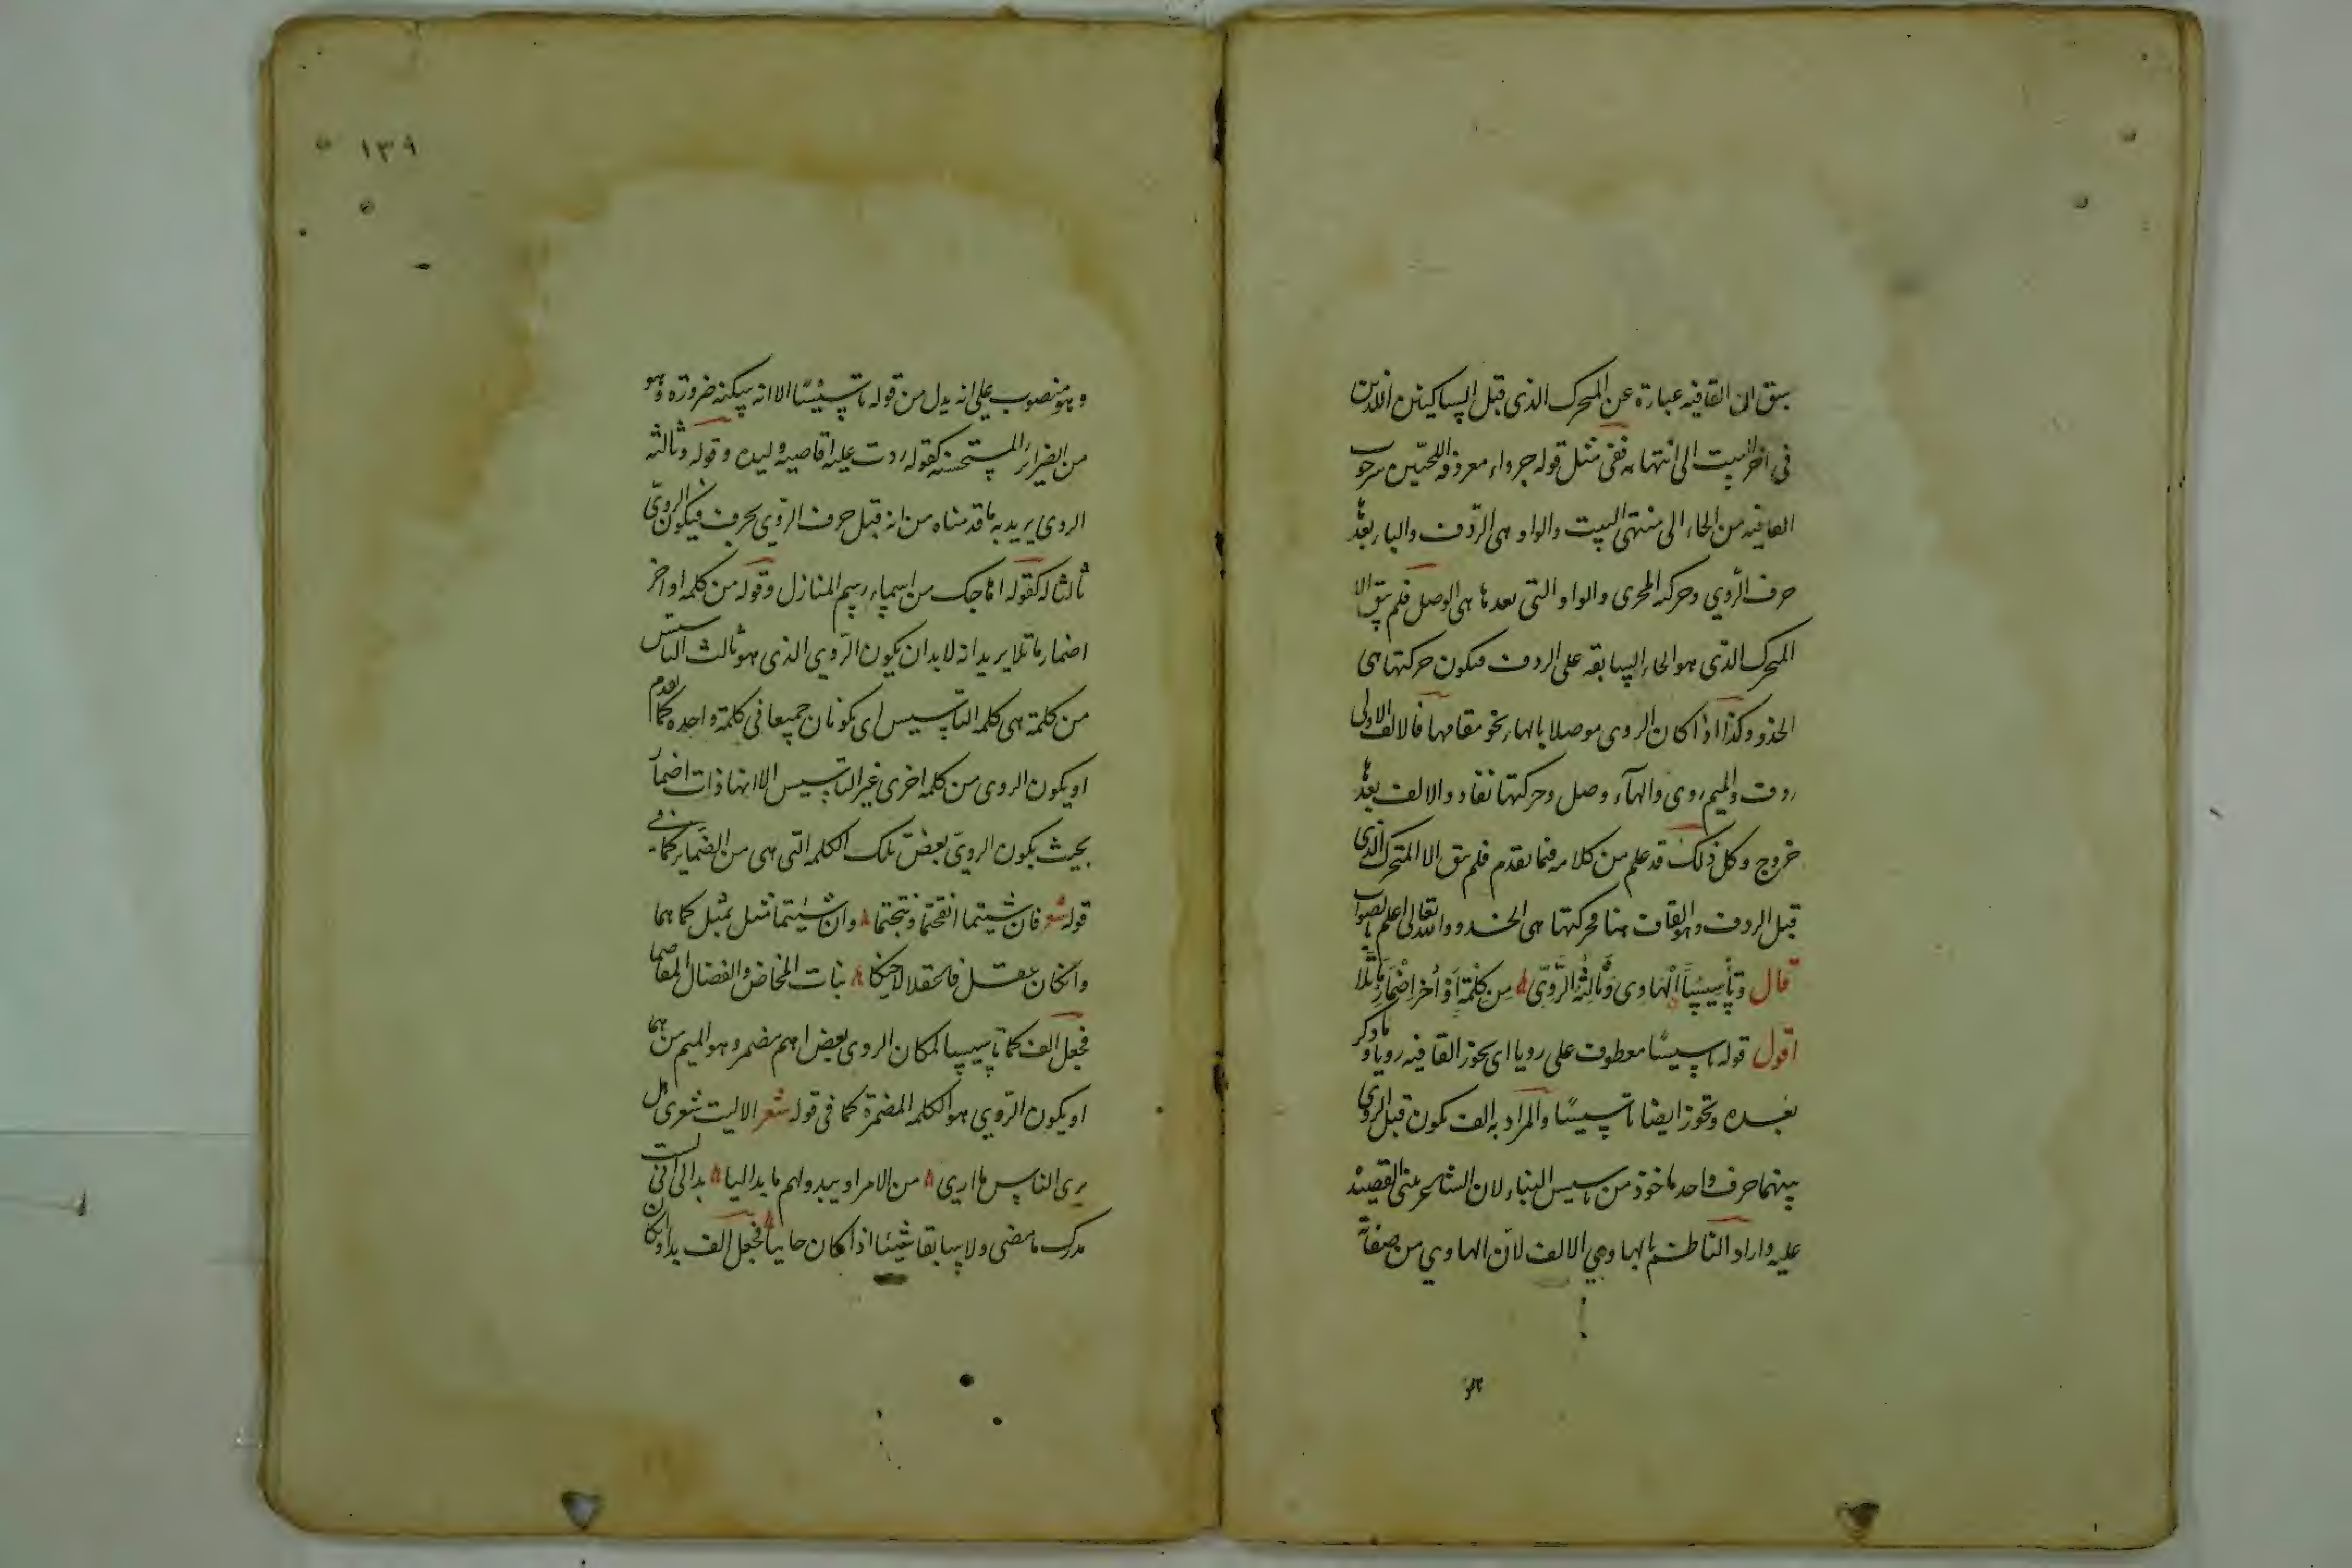 سبق ان القافيه عبارة عن المتحرك الذى قبل الساكنين الذين
فى آخر البيت الى انتهائه ففى مثل قوله جرداء معروقة اللحيين سرحوب
القافيه من الحاء الى منتهى البيت والواو هى الردف والباء بعدها
حرف الروي وحركته المجرى والواو التى بعدها هى الوصل فلم يبق الا
المتحرك الذى هو الحاء السابقه على الردف فيكون حركتها هى
الحذو وكذا اذا كان الروى موصلا بالهاء نحو مقامها فالالف الاولى
ردف والميم روى والهآء وصل وحركتها نفاد والالف بعدها
خروج وكل ذلك قد علم من كلامه فيما تقدم فلم يبق الا المتحرك الذى
قبل الردف وهو القاف هنا فحركتها هى الحذو والله تعالى اعلم بالصواب
قال وتأسيسًا الهاوى وثالثه الروىّ من كلمة او اخر اضمار ما تلا
اقول قوله تاسيسًا معطوف على رويا اى تحوز القافيه رويا وما ذكر
بعده وتحوز ايضا تاسيسًا والمراد به الف تكون قبل الروى
بينهما حرف واحد ماخوذ من تاسيس البناء لان الشاعر يبنى القصيد
عليه واراد الناظم بالهاوي الالف لان الهاوي من صفاته
١٣٩
وهو منصوب على انه بدل من قوله تاسيسًا الا انه سكنه ضرورة وهو
من الضراير المستحسنه كقوله ردت عليه اقاصيه ولبده وقوله وثالثه
الروى يريد به ما قدمناه من انه قبل حرف الروى بحرف فيكون الروىّ
ثالثا له كقوله اهاجك من اسماء رسم المنازل وقوله من كلمه او اخر
اضمار ما تلا يريد انه لابد ان يكون الروي الذى هو ثالث التاسيس
من كلمة هى كلمه التاسيس اى يكونان جميعا فى كلمة واحده كما تقدم
او يكون الروى من كلمه اخرى غير التاسيس الا انها ذات اضمار
بحيث يكون الروىّ بعض تلك الكلمه التى هى من الضماير كما فى
قوله شعر فان شيتما القحتما ونتجتما وان شيتما مثل بمثل كما هما
وان كان عقل فاعقلا لاخيكما بنات المخاض والفصال المقاحما
فجعل الف كما تاسيسا لمكان الروى بعض اسم مضمر وهو الميم من هما
او يكون الروي هو الكلمه المضمرة كما فى قوله شعر الا ليت شعرى هل
يرى الناس ما ارى من الامر او يبدو لهم ما بدا ليا بدا لى انى لست
مدرك ما مضى ولا سابقا شيئا اذا كان جاييا فجعل الف بدا وان كان